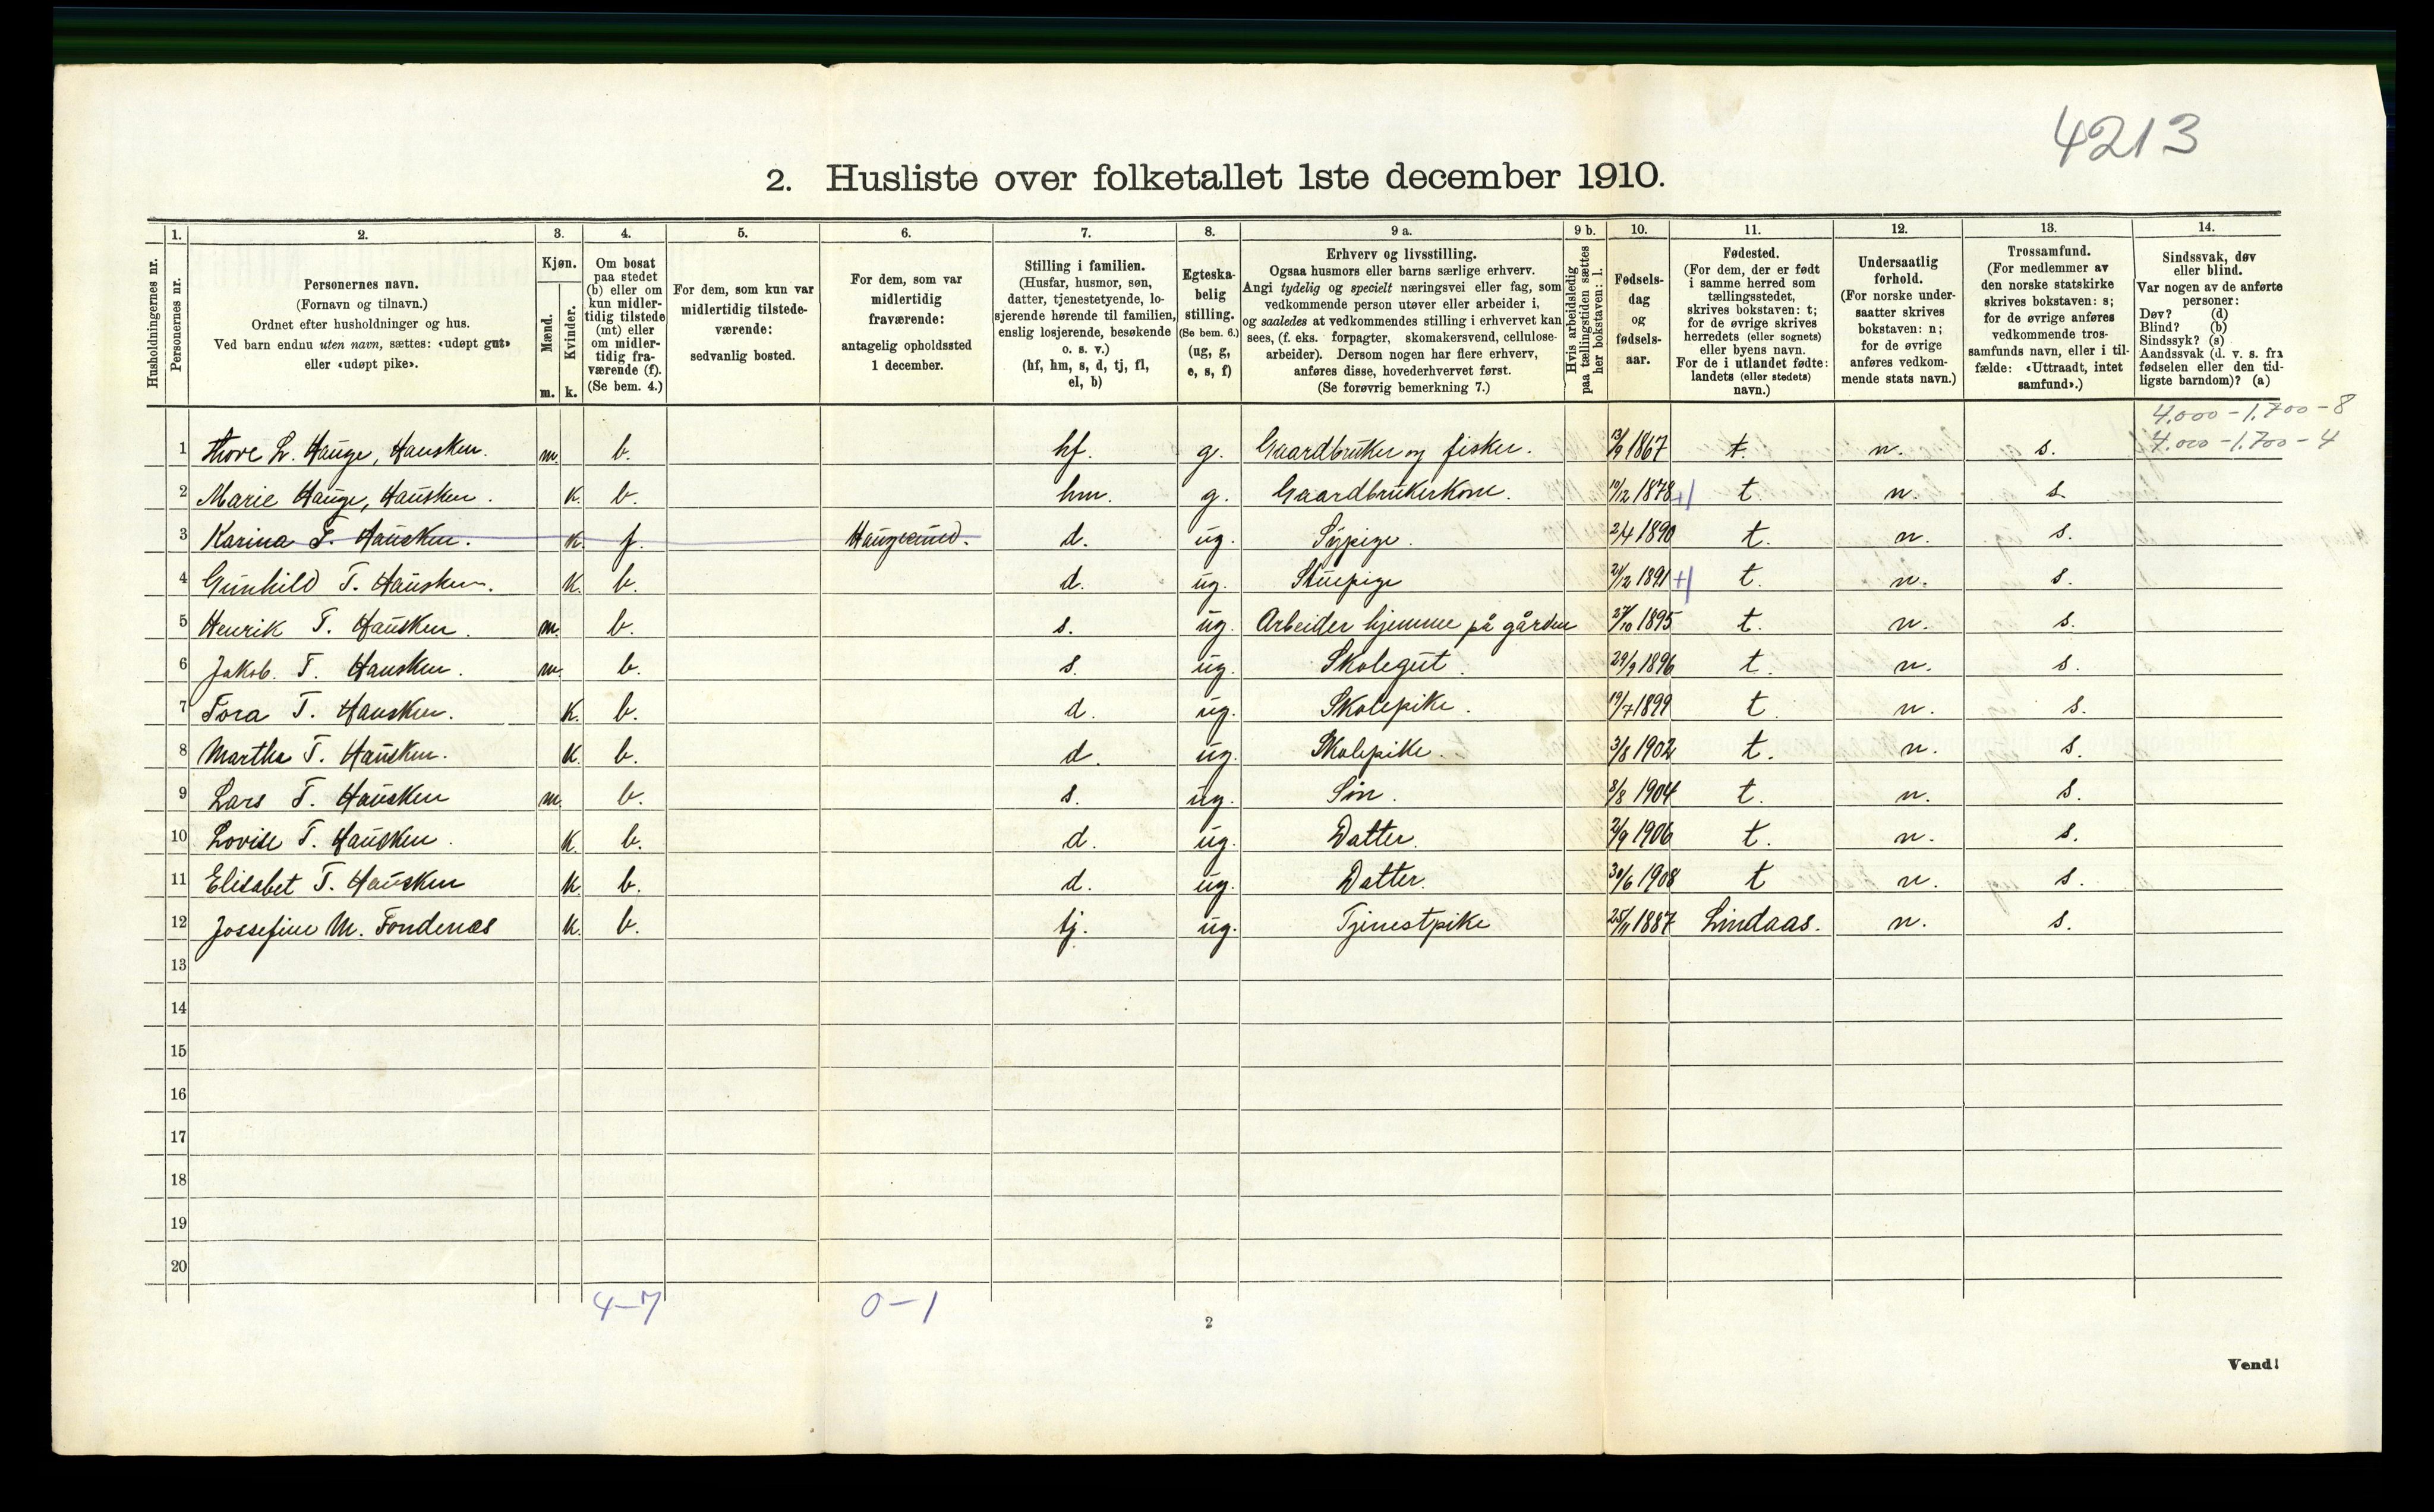 4213
2. Husliste over folketallet 1ste december 1910.
Husholdningernes nr.
1. Personernes nr.
2. Personernes navn. (Fornavn og tilnavn.) Ordnet efter husholdninger og hus. Ved barn endnu uten navn, sættes: «udøpt gut» eller «udøpt pike».
3. Kjøn. Mænd. m. Kvinder. k.
4. Om bosat paa stedet (b) eller om kun midlertidig tilstede (mt) eller om midlertidig fraværende (f). (Se bem. 4.)
5. For dem, som kun var midlertidig tilstedeværende: sedvanlig bosted.
6. For dem, som var midlertidig fraværende: antagelig opholdssted 1 december.
7. Stilling i familien. (Husfar, husmor, søn, datter, tjenestetyende, losjerende hørende til familien, enslig losjerende, besøkende o. s. v.) (hf, hm, s, d, tj, fl, el, b)
8. Egteskabelig stilling. (Se bem. 6.) (ug, g, e, s, f)
9 a. Erhverv og livsstilling. Ogsaa husmors eller barns særlige erhverv. Angi tydelig og specielt næringsvei eller fag, som vedkommende person utøver eller arbeider i, og saaledes at vedkommendes stilling i erhvervet kan sees, (f. eks. forpagter, skomakersvend, cellulosearbeider). Dersom nogen har flere erhverv, anføres disse, hovederhvervet først. (Se forøvrig bemerkning 7.)
9 b. Hvis arbeidsledig paa tællingstiden sættes her bokstaven: l.
10. Fødselsdag og fødselsaar.
11. Fødested. (For dem, der er født i samme herred som tællingsstedet, skrives bokstaven: t; for de øvrige skrives herredets (eller sognets) eller byens navn. For de i utlandet fødte: landets (eller stedets) navn.)
12. Undersaatlig forhold. (For norske undersaatter skrives bokstaven: n; for de øvrige anføres vedkommende stats navn.)
13. Trossamfund. (For medlemmer av den norske statskirke skrives bokstaven: s; for de øvrige anføres vedkommende trossamfunds navn, eller i tilfælde: «Uttraadt, intet samfund».)
14. Sindssvak, døv eller blind. Var nogen av de anførte personer: Døv? (d) Blind? (b) Sindssyk? (s) Aandssvak (d. v. s. fra fødselen eller den tidligste barndom)? (a)
4.000 - 1.700 - 8
4.000 - 1.700 - 4
1 Thore L. Hauge, Hausken. m. b. hf. g. Gaardbruker og fisker. 13/9 1867 t. n. s.
2 Marie Hauge, Hausken. k. b. hm. g. Gaardbrukerkone. 10/12 1878 t n. s.
3 Karina T. Hausken. k. f. Haugesund. d. ug. Sypige. 2/4 1890 t. n. s.
4 Gunhild T. Hausken. k. b. d. ug. Stuepige 21/2 1891 t. n. s.
5 Henrik T. Hausken. m. b. s. ug. Arbeider hjemme på gården 27/10 1895 t. n. s.
6 Jakob. T. Hausken. m. b. s. ug. Skolegut. 29/9 1896 t. n. s.
7 Tora T. Hausken. k. b. d. ug. Skolepike. 19/7 1899 t. n. s.
8 Martha T. Hausken. k. b. d. ug. Skolepike. 3/8 1902 t. n. s.
9 Lars T. Hausken m. b. s. ug. Sön. 8/8 1904 t. n. s.
10 Lovise T. Hausken. k. b. d. ug. Datter. 2/9 1906 t. n. s.
11 Elisabet T. Hausken k. b. d. ug. Datter. 30/6 1908 t n. s.
12 Jossefine M. Fondenæs k. b. tj. ug. Tjenestpike 25/11 1887 Lindaas. n. s.
13
14
15
16
17
18
19
20
4-7
0-1
2
Vend!